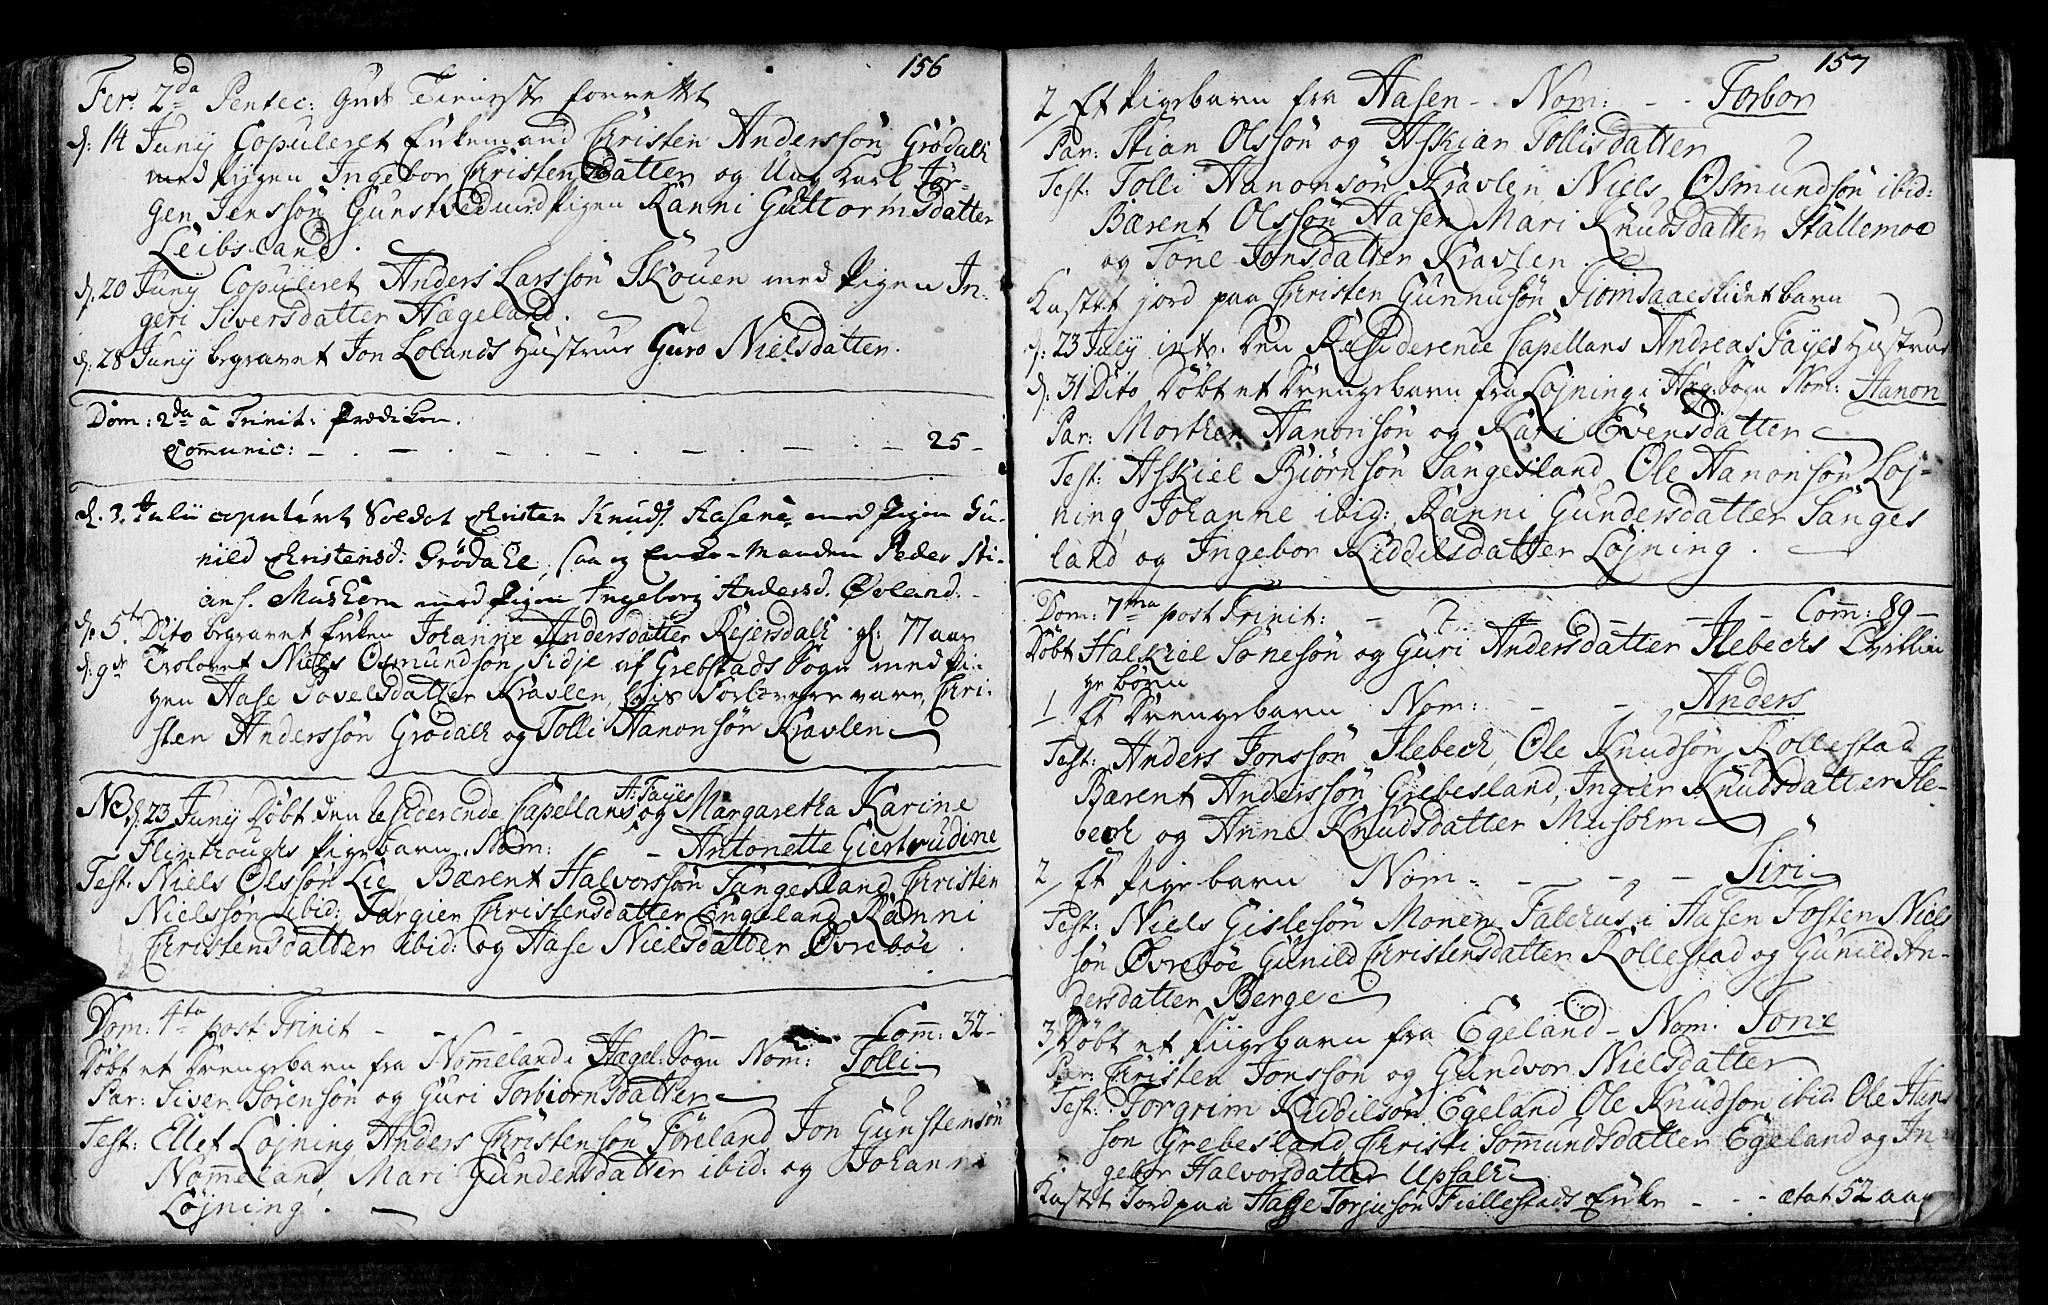 156
Fer: 2da Pentec: Guds Tieniste forrettet
d: 14 Juny Copuleret Enkemand Christen Anderssøn Grødalk
med Pigen Ingebor Christensdatter og Ung Karl Jør-
gen Jenssøn Gunstved med Pigen Ranni Guttormsdatter
Leibsland.
d: 20 Juny Copuleret Anders Larssøn Skouen med Pigen In-
geri Siversdatter Hægeland.
d: 28 Juny begravet Jon Lolands Hustrue Guro Nielsdatter.
Dom: 2da à Trinit: Prædiken.
Comunic: - . - . - . - . - . - 25 -
d. 3. Julii copulert Soldat Christen Knuds. Aasene med Pigen Gu-
nild Christensd: Grødahl, saa og Enke-Manden Peder Sti-
ans. Muskom med Pigen Ingeborg Andersd. Øvland.
d: 5te Dito begravet Enken Johanne Andersdatter Reiersdalk gl: 77 aar
d: 9de Trolovet Niels Osmundsøn Tidje af Grebstads Sogn med Pi-
gen Aase Povelsdatter Kravlen, hvis Forlovere vare, Chri-
sten Anderssøn Grødalk og Tolli Hanonsøn Kravlen
NB d: 23 Juny Døbt den Residerende Capellans A: Fayes og Margaretha Karine
Flinthoughs Pigebarn. Nom: - Antonette Giertrudine
Test: Niels Olssøn Lie Bærent Halvorssøn Sangesland Christen
Nielssøn ibid: Targier Christensdatter Engeland Ranni
Christensdatter ibid: og Aase Nielsdatter Øvrebøe.
Dom: 4ta post Trinit - - - - Com: 32 -
Døbt et Drengebarn fra Nomeland i Hægel: Sogn Nom: Tolli
Par: Siver Sørensøn og Guri Torbiørnsdatter
Test: Ellef Løjning Anders Christensøn Føreland Jon Gunstensøn
Nomeland Mari Gundersdatter ibid: og Johanne
Løjning.
157
2 Et Pigebarn fra Aasen - Nom: - - Torbor
Par: Stian Olssøn og Askier Tollisdatter
Test: Tolli Hanonsøn Kravlen Niels Osmundsøn ibid:
Bærent Olssøn Aasen Mari Knudsdatter Stallemoe
og Tone Jonsdatter Kravlen.
Kastet jord paa Christen Gunnusøn Fiomsaaes lidet barn
d: 23 July intr. Den Residerende Capellans Andreas Fayes Hustrue
d: 31 Dito Døbt et Drengebarn fra Løjning i Hæg: Sogn Nom: Hanon
Par: Morthen Hanonsøn og Kari Evensdatter
Test: Askiel Biørnsøn Sangesland, Ole Hanonsøn Løj-
ning Johanne ibid: Ranni Gundersdatter Sanges
land og Ingebor Kiddilsdatter Løjning.
Dom: 7ma post Trinit: - - - - Com: 89 -
Døbt Halkiel Sønesøn og Guri Andersdatter Ilebechs Tvillin
ge børn
1 Et Drengebarn Nom: - - - Anders
Test: Anders Jonssøn Ilebech, Ole Knudsøn Rollestad
Bærent Anderssøn Grebesland, Ingier Knudsdatter Ile-
bech og Anne Knudsdatter Musohm
2 Et Pigebarn Nom: - - - - Siri
Test: Niels Gislesøn Monen Talehus i Aasen Tosten Niels
søn Øvrebøe Gunild Christensdatter Rollestad og Gunild An-
dersdatter Berge
3 Døbt et Pigebarn fra Egeland - Nom: Tone
Par: Christen Jonssøn og Gundvor Nielsdatter
Test: Torgrim Kiddilsøn Egeland Ole Knudsøn ibid: Ole Hans
søn Grebesland, Christi Somundsdatter Egeland og In-
gebor Halvorsdatter Upsalk
Kastet Jord paa Aage Torjusøn Fiellestads Enke - - ætat 52 aar